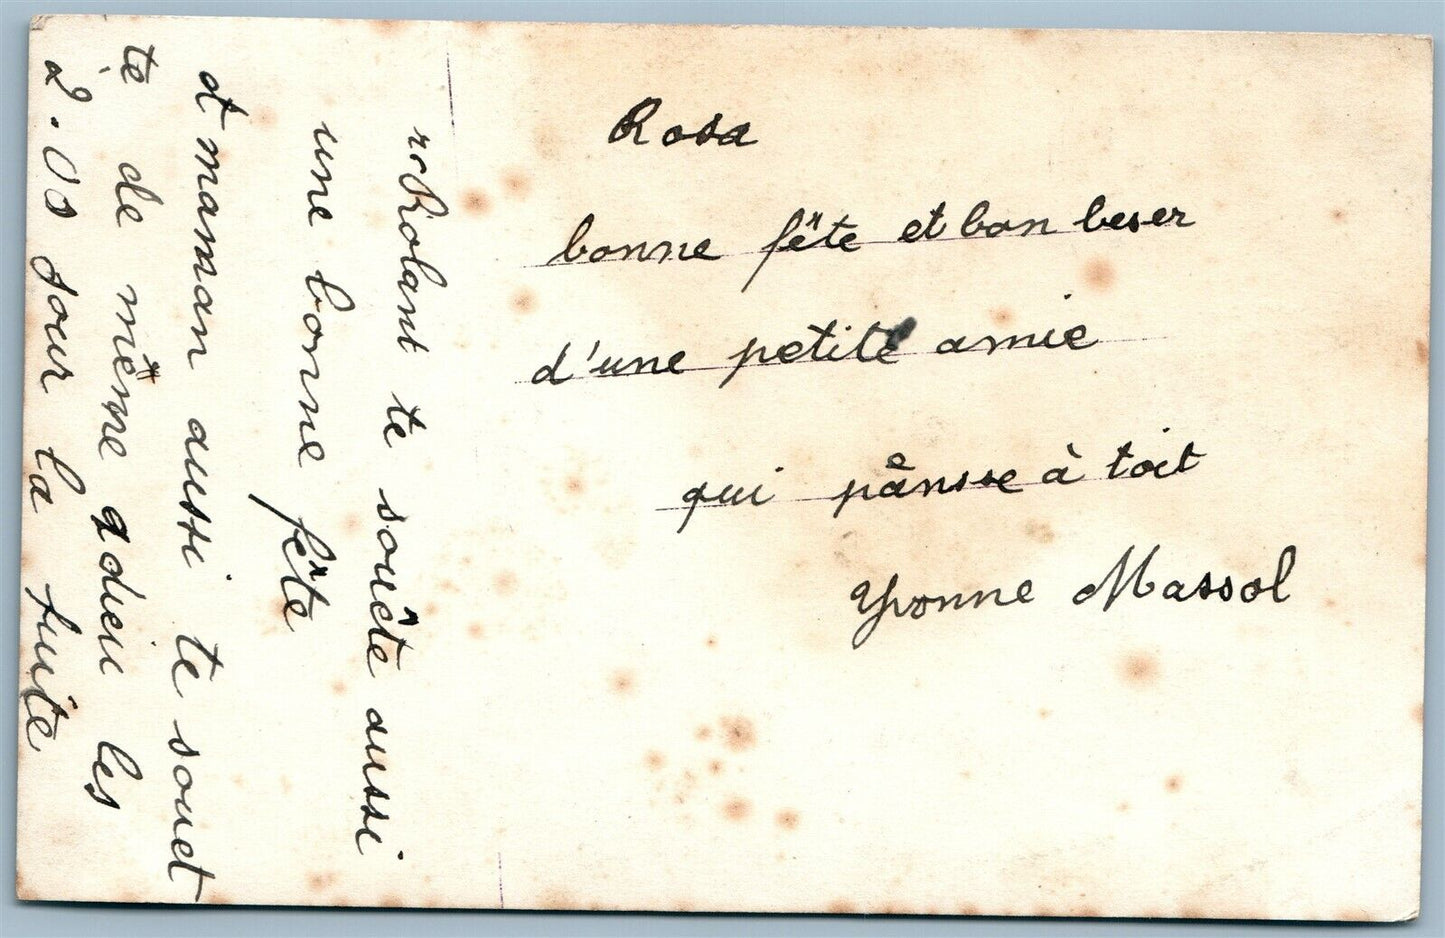 Rosa
bonne fête et bon beser
d'une petite amie
qui pânsse à toit
Yvonne Massol
Rolant te souête aussi
une bonne fête
et maman aussi te souet
te de même adieu les
sour la suite